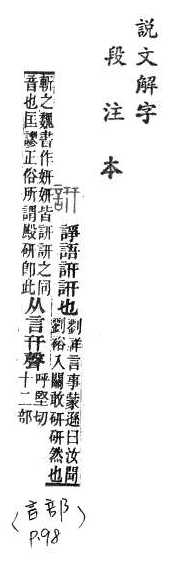 説文解字
段注本
訮 諍語訮訮也
劉祥言事蒙遜曰汝聞
劉裕入關敢研研然也
斬之魏書作妍妍皆訮訮之同
音也匡謬正俗所謂殿研卽此
从言幵聲
呼堅切
十二部
〈言部〉
P.98